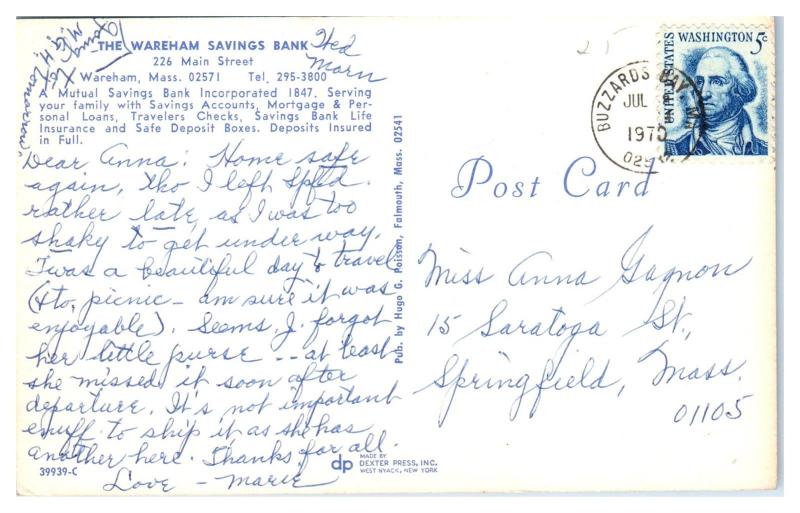 THE WAREHAM SAVINGS BANK
226 Main Street
Wareham, Mass. 02571 Tel. 295-3800
A Mutual Savings Bank Incorporated 1847. Serving
your family with Savings Accounts, Mortgage & Per-
sonal Loans, Travelers Checks, Savings Bank Life
Insurance and Safe Deposit Boxes. Deposits Insured
in Full.
Wed
Morn
Dear Anna: Home safe
again, tho I left Spfd.
rather late, as I was too
shaky to get under way.
Twas a beautiful day to travel
(& to picnic - am sure it was
enjoyable). Seems J. forgot
her little purse -- at least
she missed it soon after
departure. It's not important
enuff to ship it as she has
another here. Thanks for all.
Love - Marie
Going to
M.G.H. tomorrow.
39939-C
Pub. by Hugo G. Poisson, Falmouth, Mass. 02541
dp
MADE BY
DEXTER PRESS, INC.
WEST NYACK, NEW YORK
Post Card
BUZZARDS BAY, MA
JUL
1970
025
UNITED STATES
WASHINGTON 5c
Miss Anna Gagnon
15 Saratoga St,
Springfield, Mass.
01105